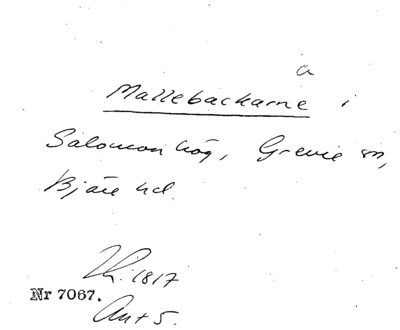 a
Mallebackarne i
Salomonhög, Grevie sn,
Bjäre hd.
Lh. 1817
Nr 7067.
Ant 5.